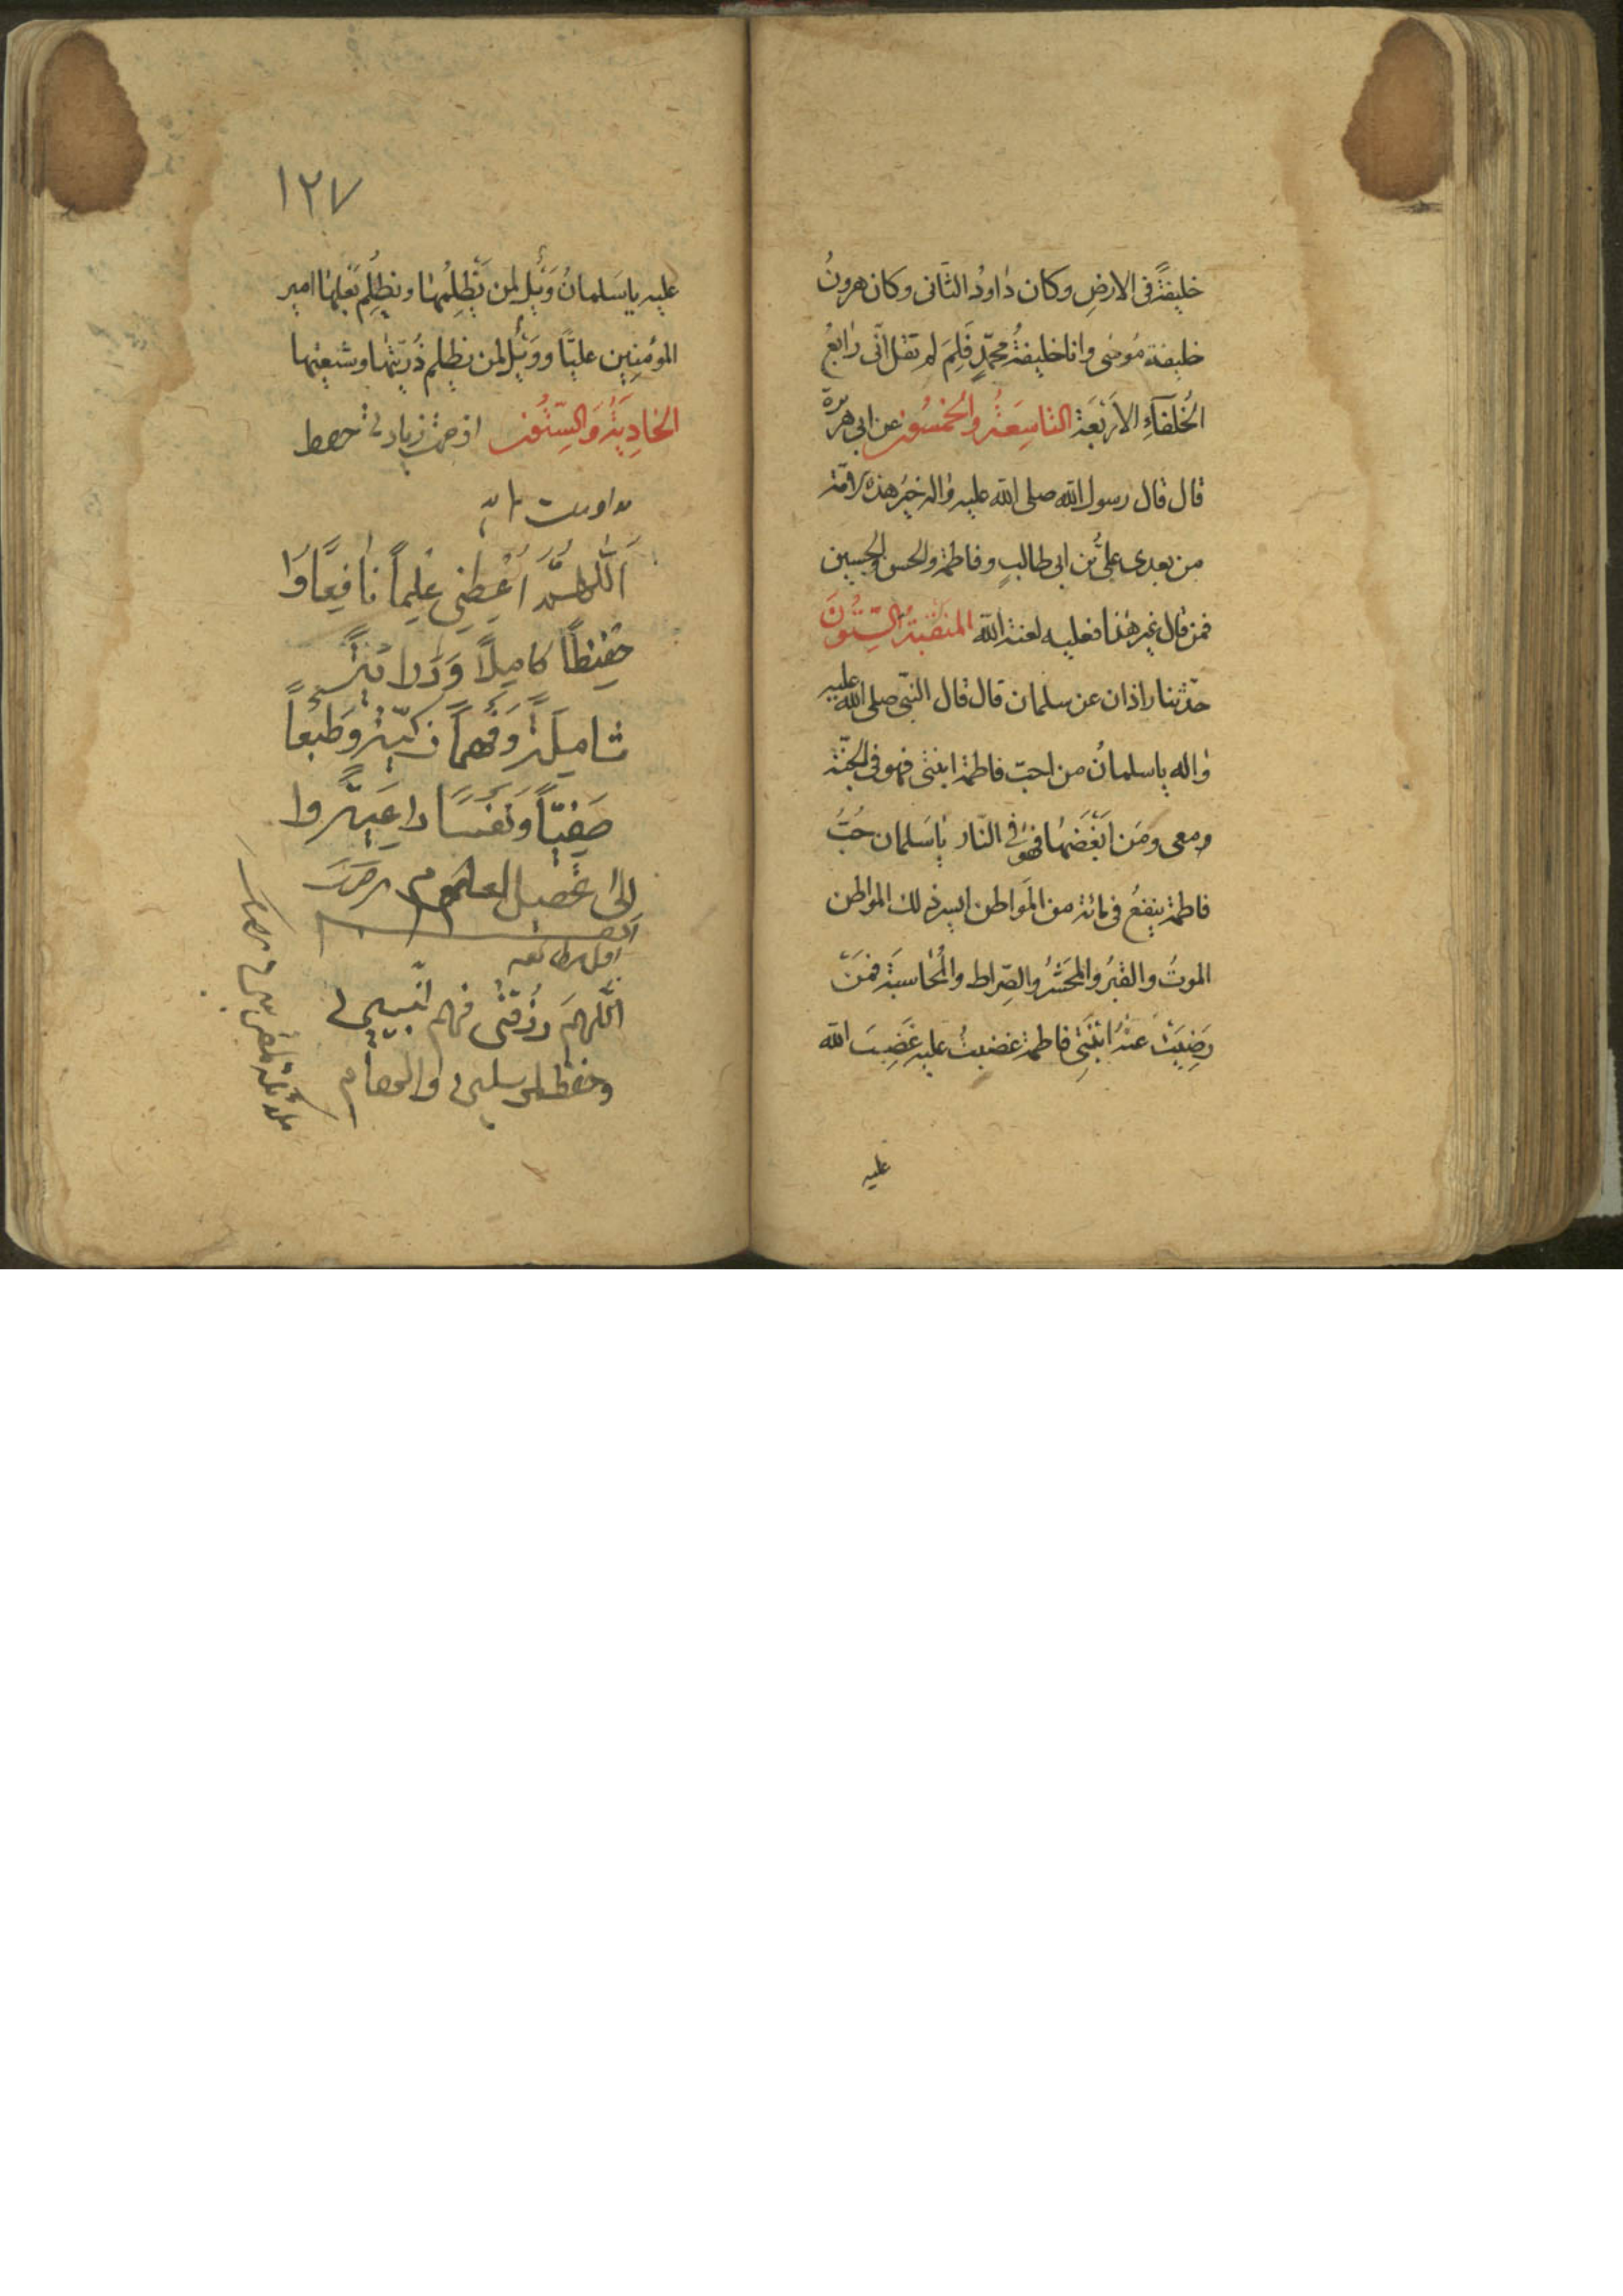 خليفةً فى الارضِ وكان داودُ الثّانى وكان هرونُ
خليفة مُوسٰى وانا خليفةُ محمّدٍ فَلِمَ لم تقل انّى رابعُ
الخُلَفآءِ الاَربَعَة التاسِعَةُ والخمسُون عن ابى هريرة
قال قال رسول الله صلى الله عليه واله خيرُ هذه الامّة
من بعدى علىُّ بن ابى طالبٍ وفاطمة والحسن والحسين
فمن قال غير هٰذا فعليه لعنة الله المنقبةُ السِّتُّونَ
حدّثنا زاذان عن سلمان قال قال النبّى صلى الله عليه
واله يا سلمانُ من احبّ فاطمة ابنتى فهو فى الجنّة
ومعى ومَن اَبغَضَها فهو فى النّار يا سَلمان حُبُّ
فاطمة ينفعُ فى مائة من المَواطن ايسر ذلك المواطن
الموتُ والقبرُ والمحَشَرُ والصِّراط والمُحاسبَة فمَن
رَضِيَت عنهُ ابنَتِى فاطمة غضبتُ عليه غَضِبَ الله
عليه
١٢٧
عليه يا سَلمانُ وَيلٌ لمن يَظلِمُها ويظلِم بَعلها امير
المؤمنِين عليًّا وويلٌ لمن يظلم ذُريّتها وشيعتها
الحادِيَةُ وَالسِّتُون
اَللّٰهُمَّ اَعْطِنِي عِلِماً نافِيعًا وَا
حفِيظاً كامِيلاً وَ
شامِيلَةً وَفَهماً زكيّةً وَطَبعاً
صَفِيّاً وَنَفسَا داعِيَةً وا
اِلىٰ تحصيل العلوم
اللَّهُمَ رزُقنى فهم انّبيين
وحفظ المرسلين والهام